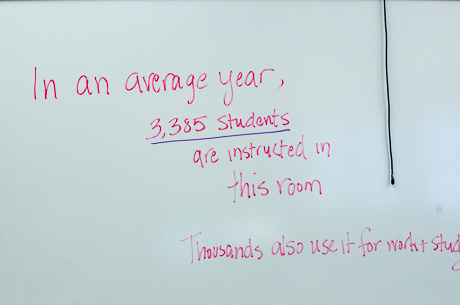 In an average year,
3,385 students
are instructed in
this room
Thousands also use it for work + stud